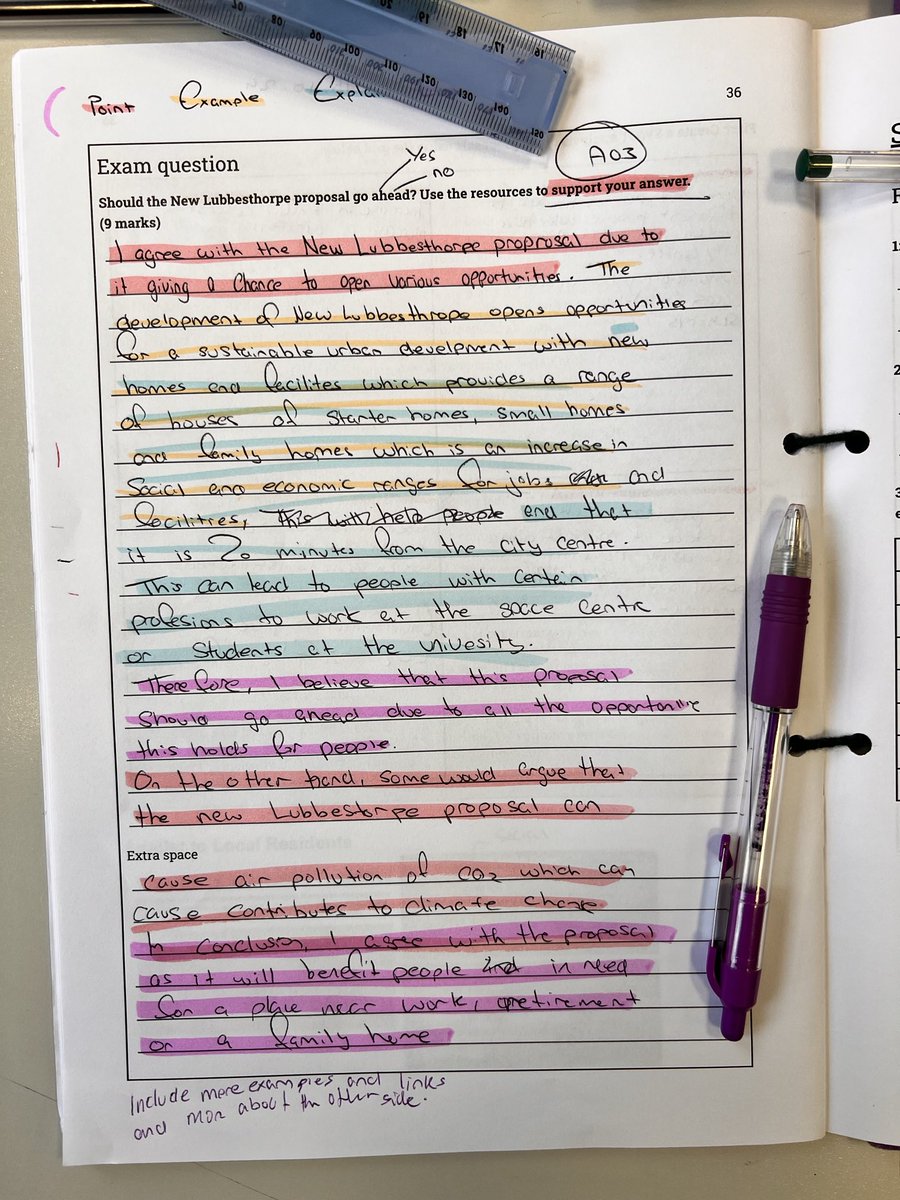 Point Example Expla
36
Exam question
Yes
no
AO3
Should the New Lubbesthorpe proposal go ahead? Use the resources to support your answer.
(9 marks)
I agree with the New Lubbesthorpe proprosal due to
it giving a Chance to open various opportunities. The
development of New Lubbesthrope opens opportunities
for a sustainable urban develepment with new
homes and facilites which provides a range
of houses of starter homes, small homes
and family homes which is an increase in
Social and economic ranges for jobs and
facilities, This will help people and that
it is 20 minutes from the city centre.
This can lead to people with certain
profesions to work at the space centre
or students at the univesity.
Therefore, I believe that this proposal
should go ahead due to all the
this holds for people.
On the other hand, some would argue that
the new Lubbestorpe proposal can
Extra space
cause air pollution of CO2 which can
cause contributes to climate change
In conclusion, I agree with the proposal
as it will benefit people in need
for a place near work, retirement
or a family home
Include more examples and links
and more about the other side.